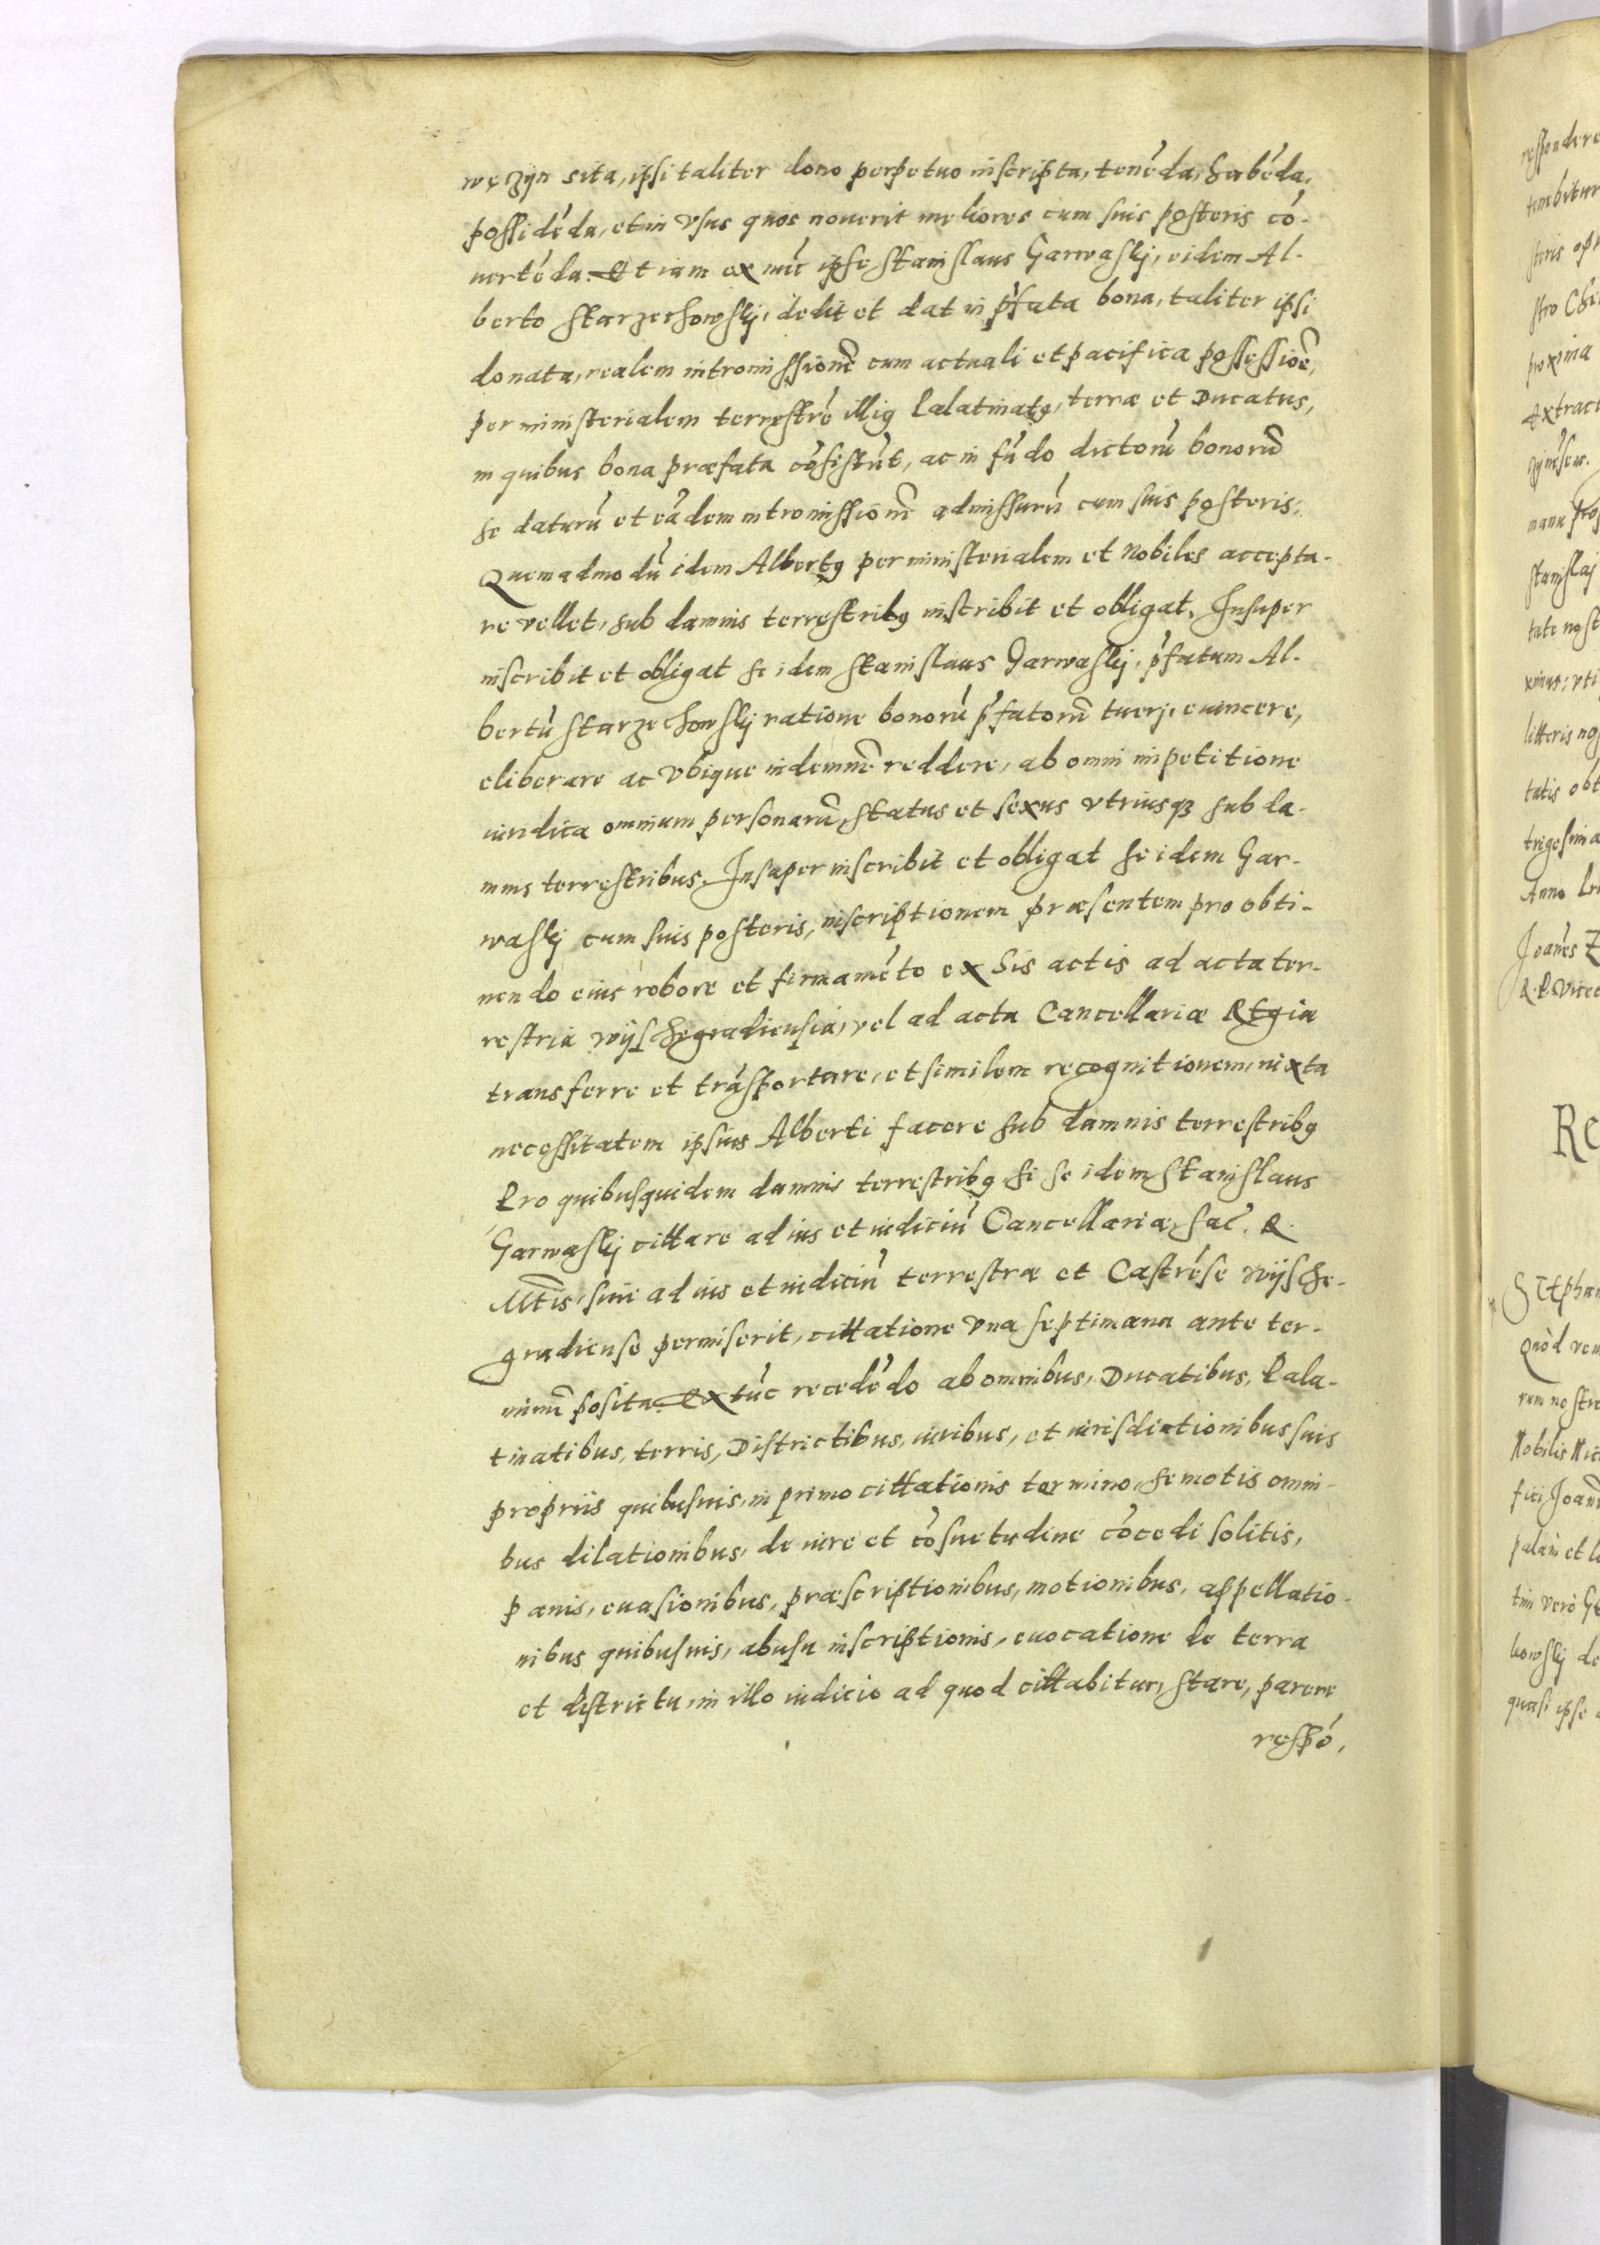 węzyn sita, ipsi taliter dono perpetuo inscripta, tenēda, habēda,
possidēda, et in vsus quos nouerit meliores cum suis posteris cō-
uertēda. Et iam ex nūc ipse Stanislaus Garwaskj, eidem Al-
berto Starzechowskj, dedit et dat in p̄fata bona, taliter ipsi
donata, realem intromissionē cum actuali et pacifica possessiōe,
per ministerialem terrestrē illiꝰ Palatinatꝰ, terræ et Ducatus,
in quibus bona præfata cōsistūt, ac in fūdo dictorū bonorū
se daturū et eādem intromissionē admissurū cum suis posteris.
Quemadmodū idem Albertꝰ per ministerialem et Nobiles accepta-
re vellet, sub damnis terrestribꝰ inscribit et obligat. Insuper
inscribit et obligat se idem Stanislaus Garwaskj, p̄fatum Al-
bertū Starzechowskj ratione bonorū p̄fatorū tueri, euincere,
eliberare ac vbique indemnē reddere, ab omni impetitione
iuridica omnium personarū, status et sexus vtriusqꝫ sub da-
mnis terrestribus. Insuper inscribit et obligat se idem Gar-
waskj cum suis posteris, inscriptionem præsentem pro obti-
nendo eius robore et firmamēto ex his actis ad acta ter-
restria wyschegradiensia, vel ad acta Cancellariæ Regia
transferre et trāsportare, et similem recognitionem, iuxta
necessitatem ipsius Alberti facere sub damnis terrestribꝰ
Pro quibusquidem damnis terrestribꝰ si se idem Stanislaus
Garwaskj cittare ad ius et iudiciū Cancellariæ Sac. R.
Mtis, siue ad ius et iudiciū terrestræ et Castrēse wysche-
gradiense permiserit, cittatione vna septimana ante ter-
minū posita. Ex tūc recedēdo ab omnibus, Ducatibus, Pala-
tinatibus, terris, Districtibus, iuribus, et iurisdictionibus suis
propriis quibusuis, in primo cittationis termino, semotis omni-
bus dilationibus, de iure et cōsuetudine cōcedi solitis,
pænis, euasionibus, præscriptionibus, motionibus, appellatio-
nibus quibusuis, abusu inscriptionis, euocatione de terra
et districtu, in illo iudicio ad quod cittabitur, stare, parere
respō,
respondere
tenebitur
proxima
Anno
Joānes Z
Re
Stephan
Quòd
rum nostra
Nobilis
fici Joann
palàm et
tim verò
quasi ipse